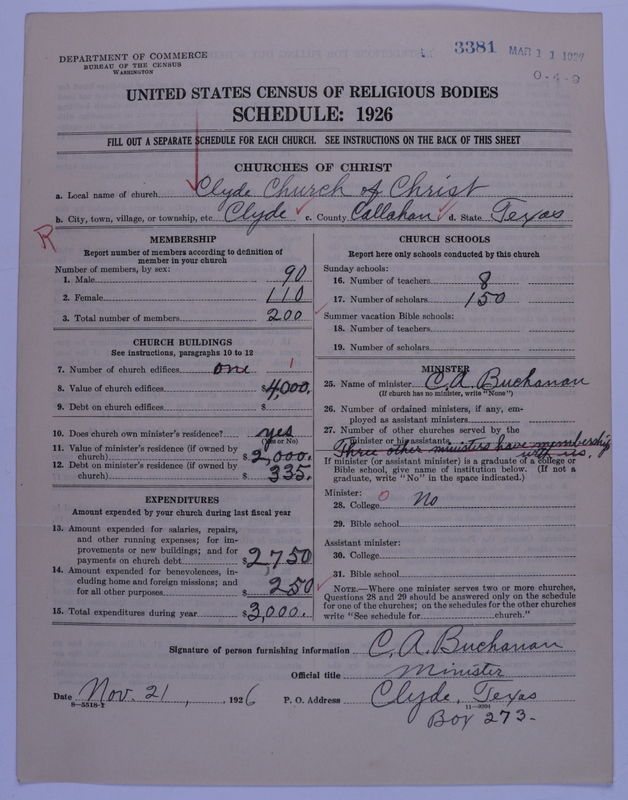 3381 MAR 11 1927
DEPARTMENT OF COMMERCE
BUREAU OF THE CENSUS
WASHINGTON
0-4-9
UNITED STATES CENSUS OF RELIGIOUS BODIES
SCHEDULE: 1926
FILL OUT A SEPARATE SCHEDULE FOR EACH CHURCH. SEE INSTRUCTIONS ON THE BACK OF THIS SHEET
CHURCHES OF CHRIST
a. Local name of church Clyde Church of Christ
b. City, town, village, or township, etc. Clyde c. County Callahan d. State Texas
R
MEMBERSHIP
Report number of members according to definition of
member in your church
Number of members, by sex:
1. Male 90
2. Female 110
3. Total number of members 200
CHURCH BUILDINGS
See instructions, paragraphs 10 to 12
7. Number of church edifices one 1
8. Value of church edifices $4,000.
9. Debt on church edifices $
10. Does church own minister's residence? yes
(Yes or No)
11. Value of minister's residence (if owned by
church) $2,000.
12. Debt on minister's residence (if owned by
church) $335.
EXPENDITURES
Amount expended by your church during last fiscal year
13. Amount expended for salaries, repairs,
and other running expenses; for im-
provements or new buildings; and for
payments on church debt $2750
14. Amount expended for benevolences, in-
cluding home and foreign missions; and
for all other purposes $250
15. Total expenditures during year $3,000.
CHURCH SCHOOLS
Report here only schools conducted by this church
Sunday schools:
16. Number of teachers 8
17. Number of scholars 150
Summer vacation Bible schools:
18. Number of teachers
19. Number of scholars
MINISTER
25. Name of minister C. A. Buchanan
(If church has no minister, write "None")
26. Number of ordained ministers, if any, em-
ployed as assistant ministers
27. Number of other churches served by the
minister or his assistants
Three other ministers have membership
with us.
If minister (or assistant minister) is a graduate of a college or
Bible school, give name of institution below. (If not a
graduate, write "No" in the space indicated.)
Minister:
28. College 0 No
29. Bible school
Assistant minister:
30. College
31. Bible school
NOTE.—Where one minister serves two or more churches,
Questions 28 and 29 should be answered only on the schedule
for one of the churches; on the schedules for the other churches
write "See schedule for church."
Signature of person furnishing information C. A. Buchanan
Official title Minister
Date Nov. 21, 1926 P. O. Address Clyde, Texas
8—5518-I 11—9394
Box 273-